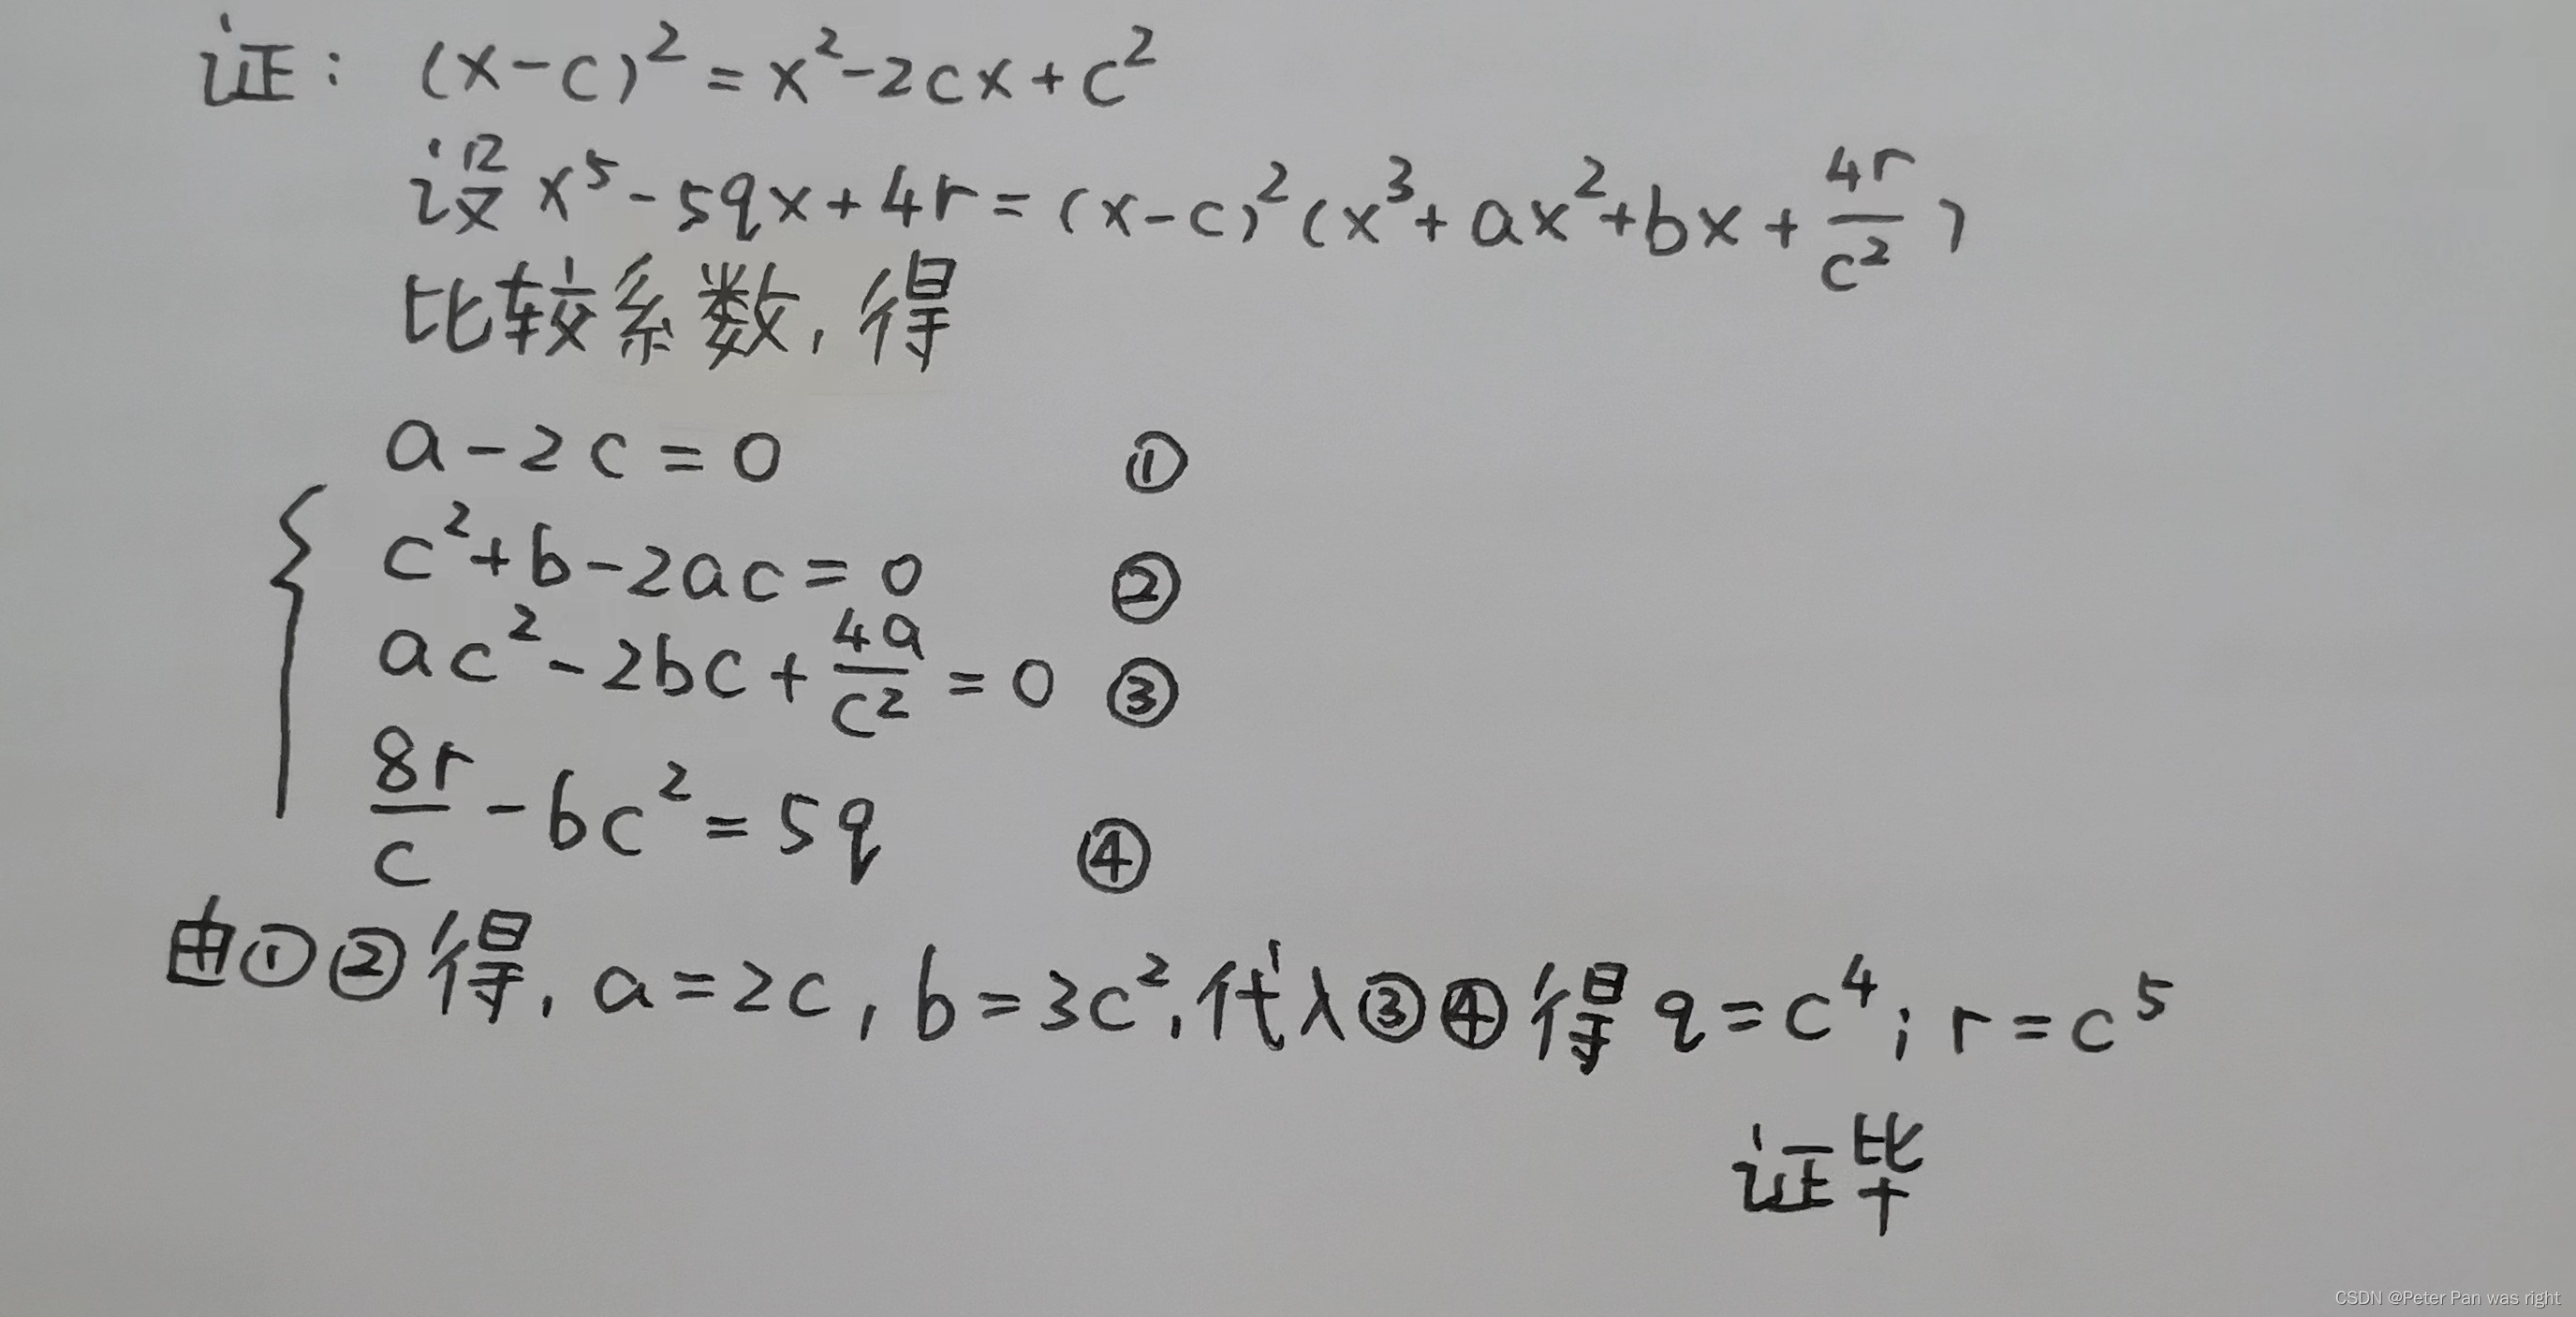 证: (x-c)²=x²-2cx+c²
设x⁵-5qx+4r=(x-c)²(x³+ax²+bx+\frac{4r}{c²})
比较系数,得
a-2c=0 ①
c²+b-2ac=0 ②
ac²-2bc+\frac{4a}{c²}=0 ③
\frac{8r}{c}-bc²=5q ④
由①②得,a=2c,b=3c²,代入③④得q=c⁴;r=c⁵
证毕
CSDN @Peter Pan was right